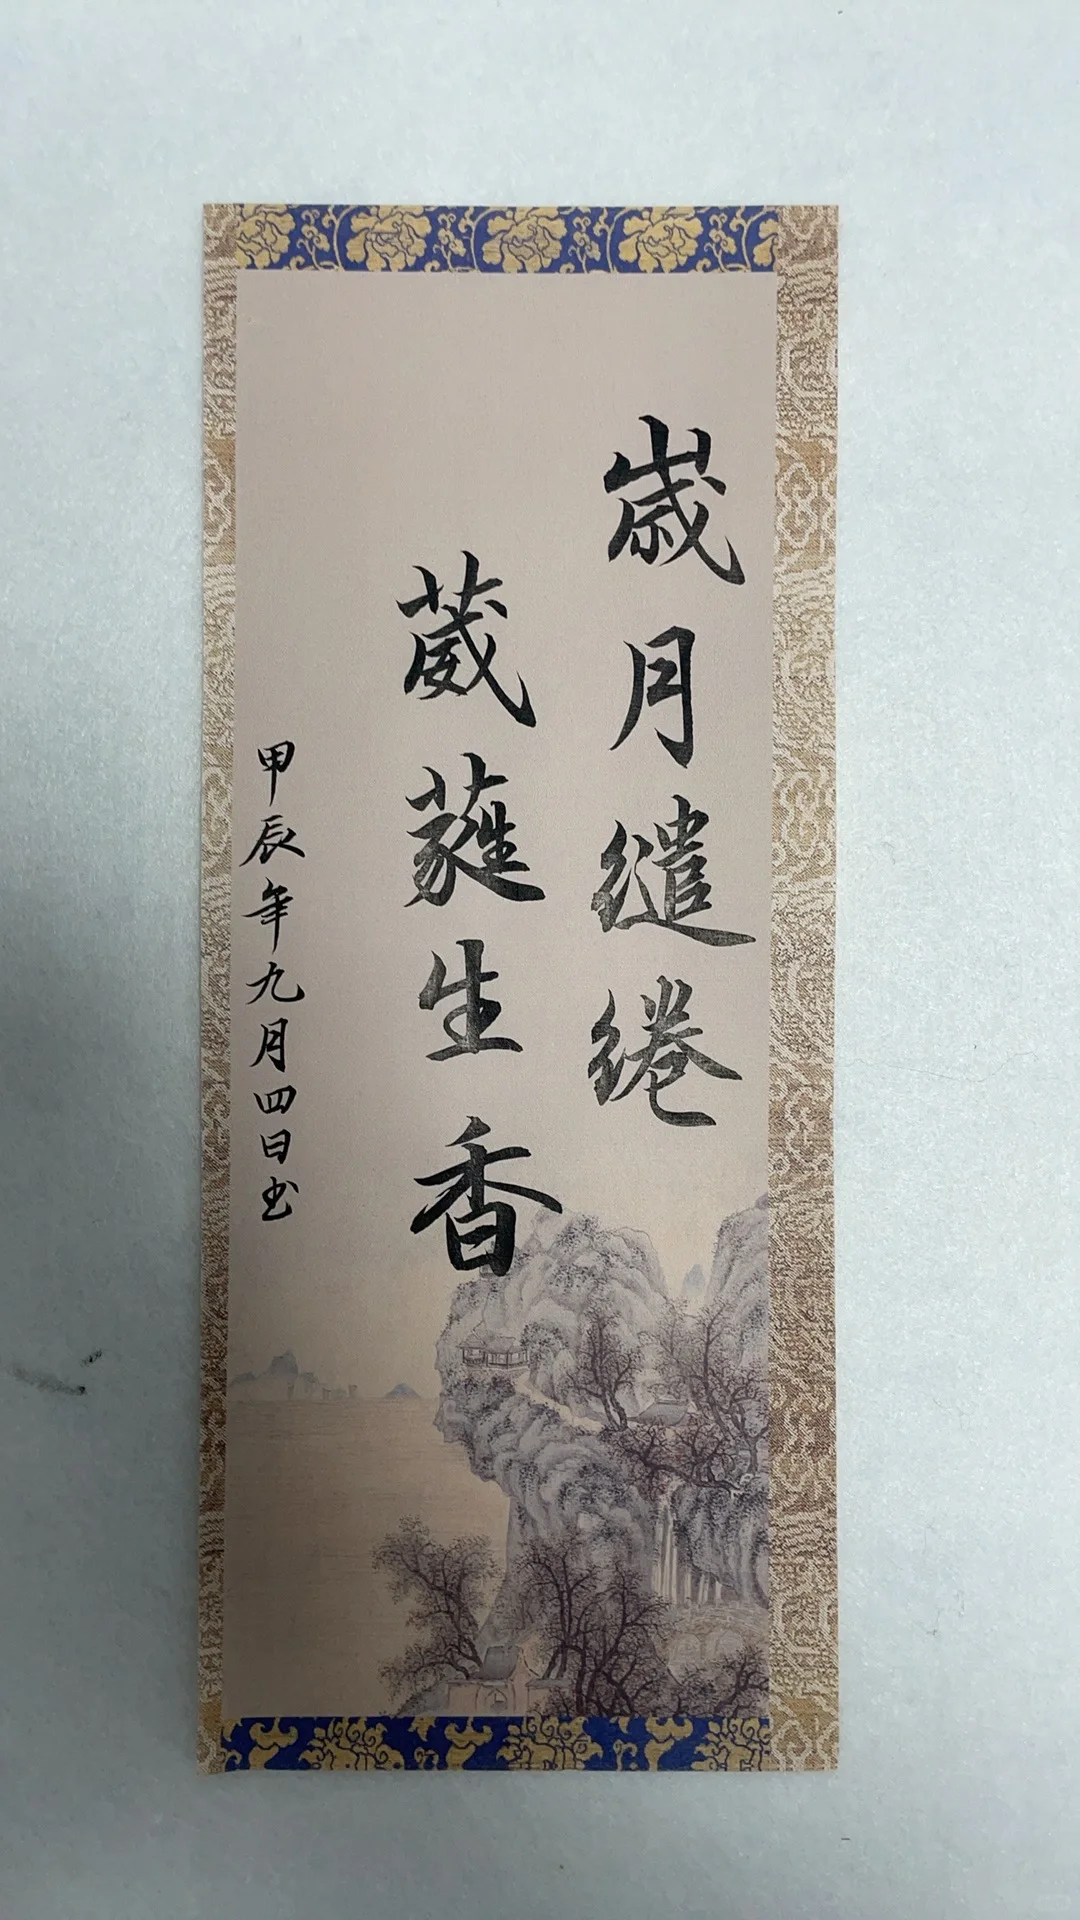 歲月繾綣
葳蕤生香
甲辰年九月四日书